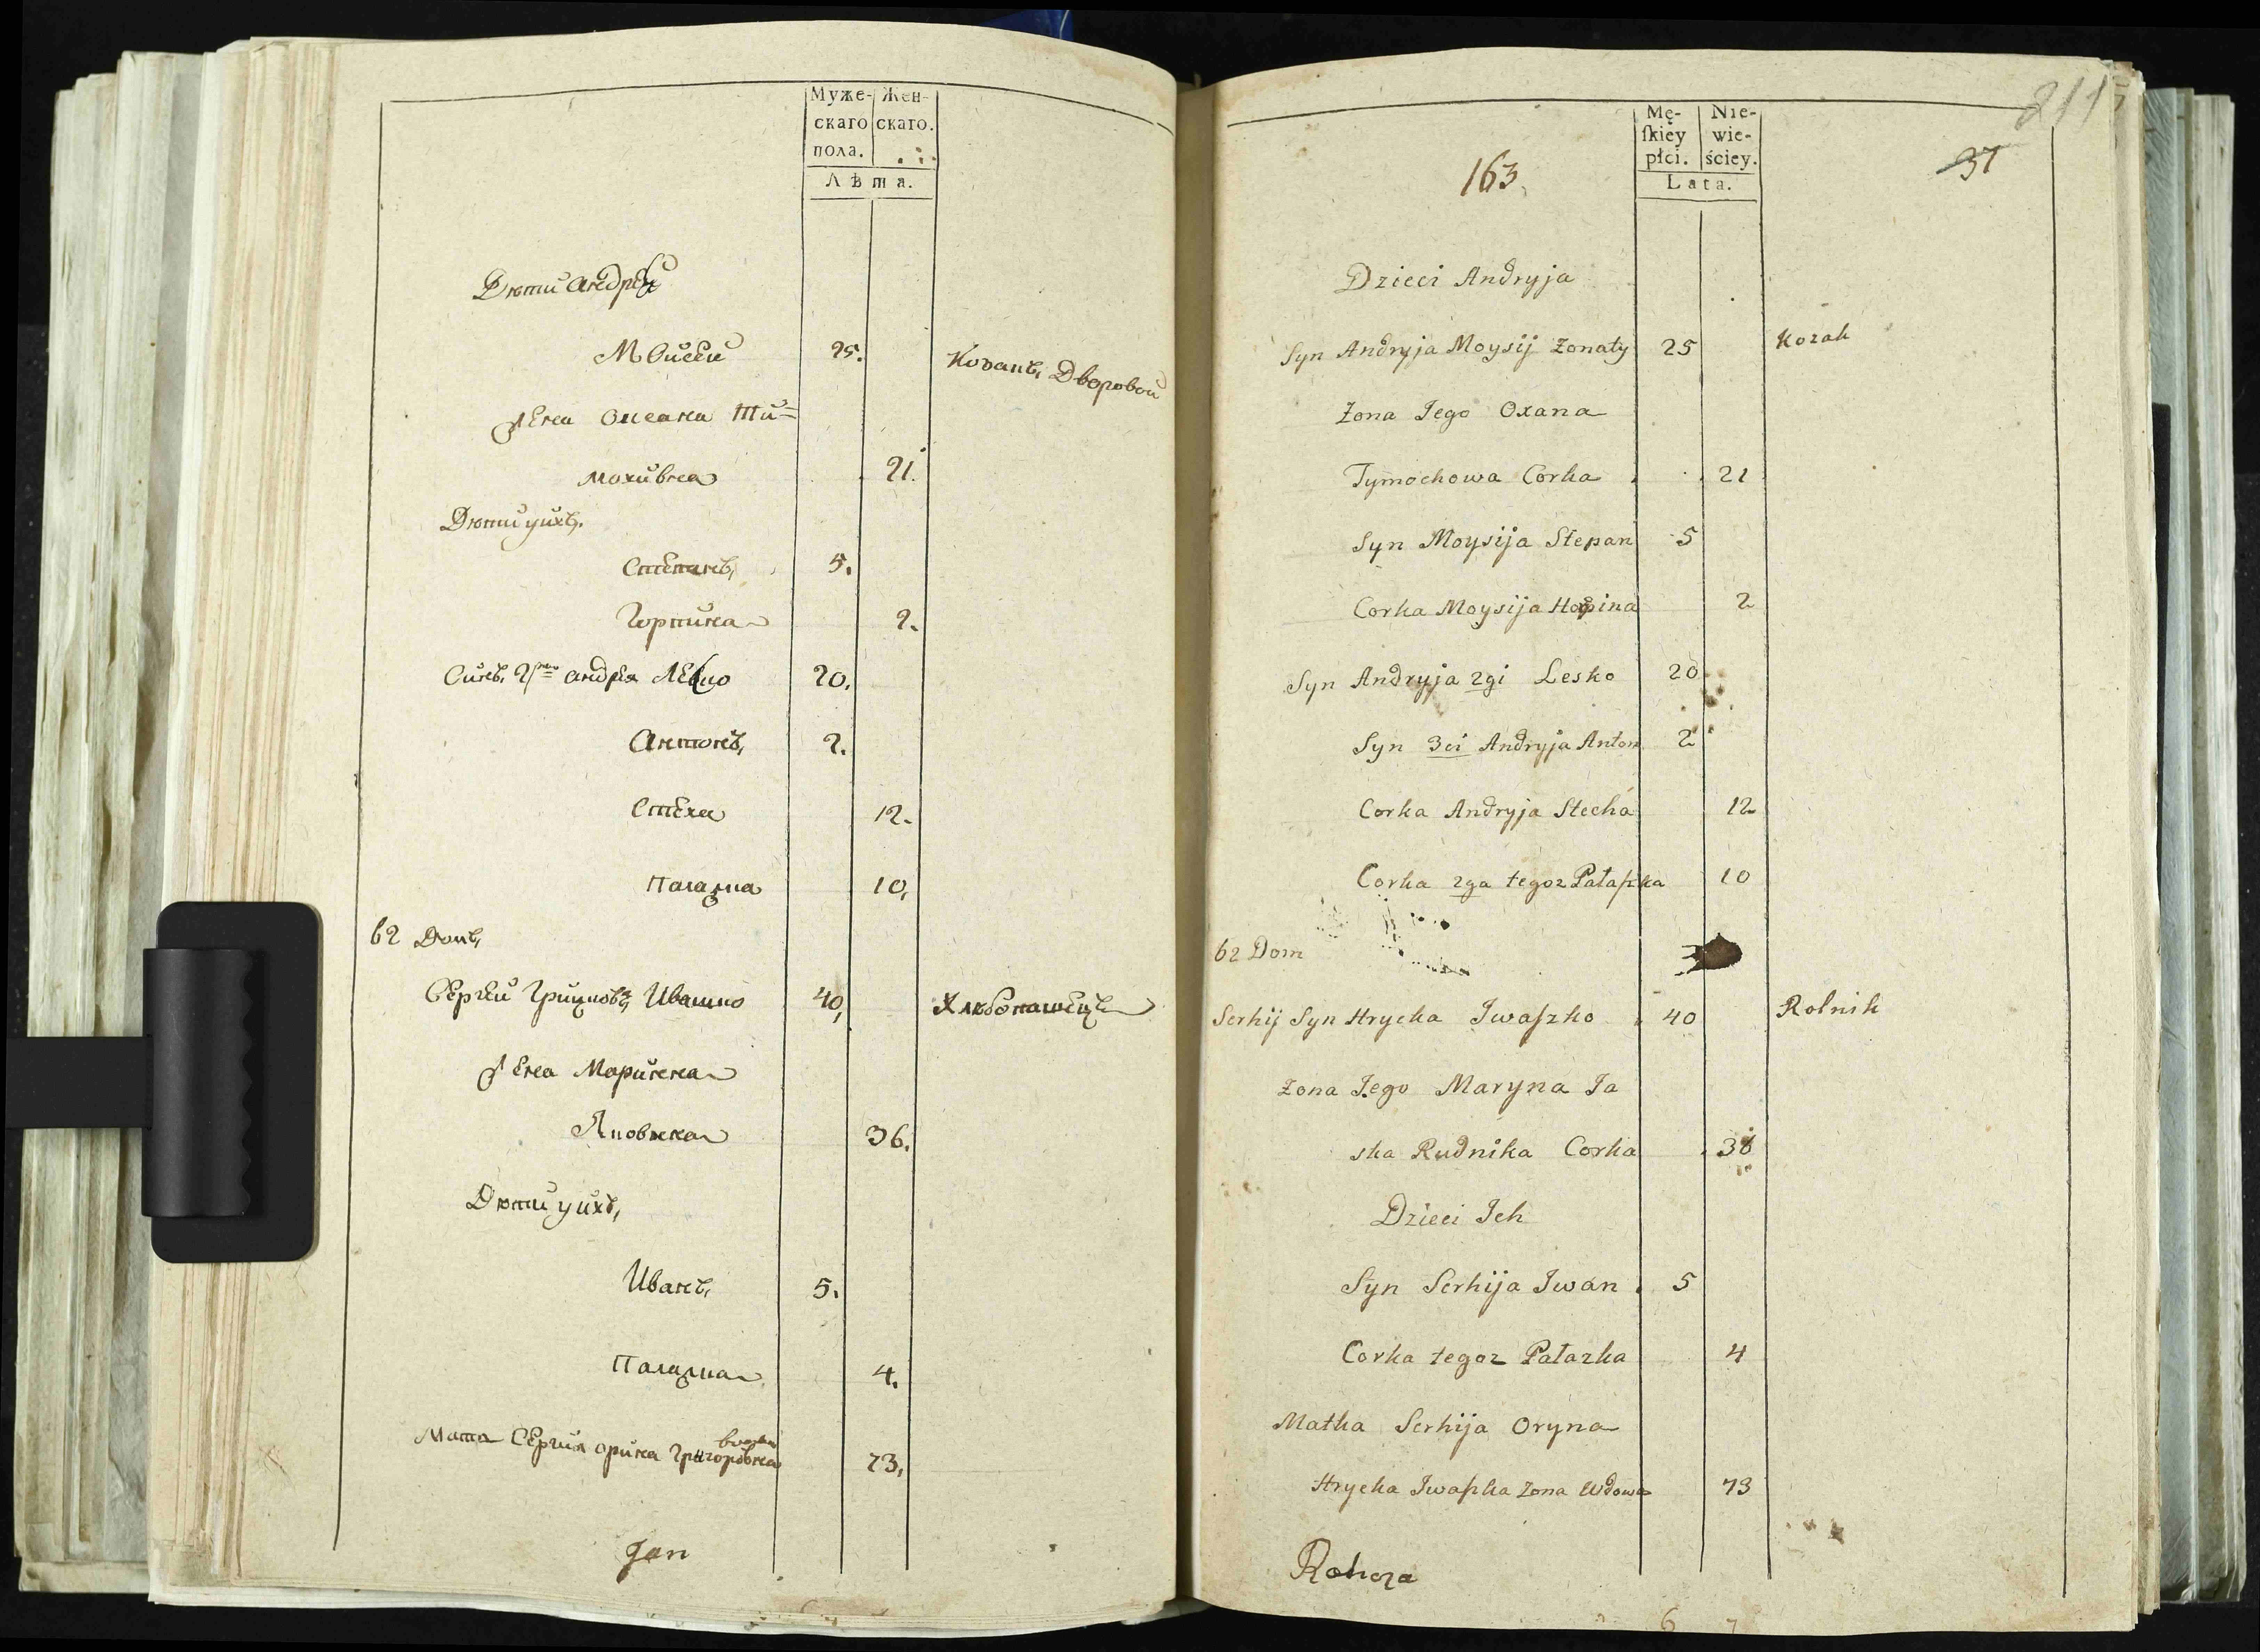 Муже-
скаго
пола.
Жен-
скаго.
Лѣта.
Дѣти Андрея
Мойсей 25. Козакъ Дворовой
Жена Оксана Ти=
мохивна 21.
Дѣти ихъ
Степанъ 5.
Горпина 2.
Синъ 2й Андрея Леско 20.
Антонъ 2.
Стеха 12.
Палажка 10.
62 Домъ
Сергей Грицковъ Ивашко 40. Хлѣбопашецъ
Жена Маринка
Яковна 36.
Дѣти ихъ
Иванъ 5.
Палажка 4.
Мати Сергия Орина Григоровна вдова 73.
Jan
2115
37
163.
Mę-
ſkiey
płci.
Nie-
wie-
ściey.
Lata.
Dzieci Andryja
Syn Andryja Moysij Zonaty 25 Kozak
Zona Jego Oxana
Tymochowa Corka 21
Syn Moysija Stepan 5
Corka Moysija Horpina 2
Syn Andryja 2gi Lesko 20
Syn 3ci Andryja Anton 2
Corka Andryja Stecha 12
Corka 2ga tegoz Pałaſzka 10
62 Dom
Serhij Syn Hrycka Iwaſzko 40 Rolnik
Zona Jego Maryna Ja
ska Rudnika Corka 36
Dzieci Ich
Syn Serhija Iwan 5
Corka tegoz Pałazka 4
Matka Serhija Oryna
Hrycka Iwaſzka Zona Wdowa 73
Rohoza
6 7